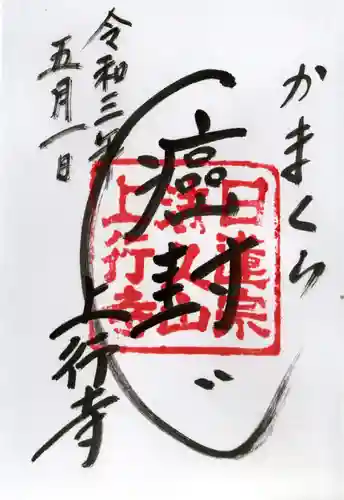 かまくら
癌封じ
令和三年
五月一日
上行寺
日蓮宗
法久山
上行寺